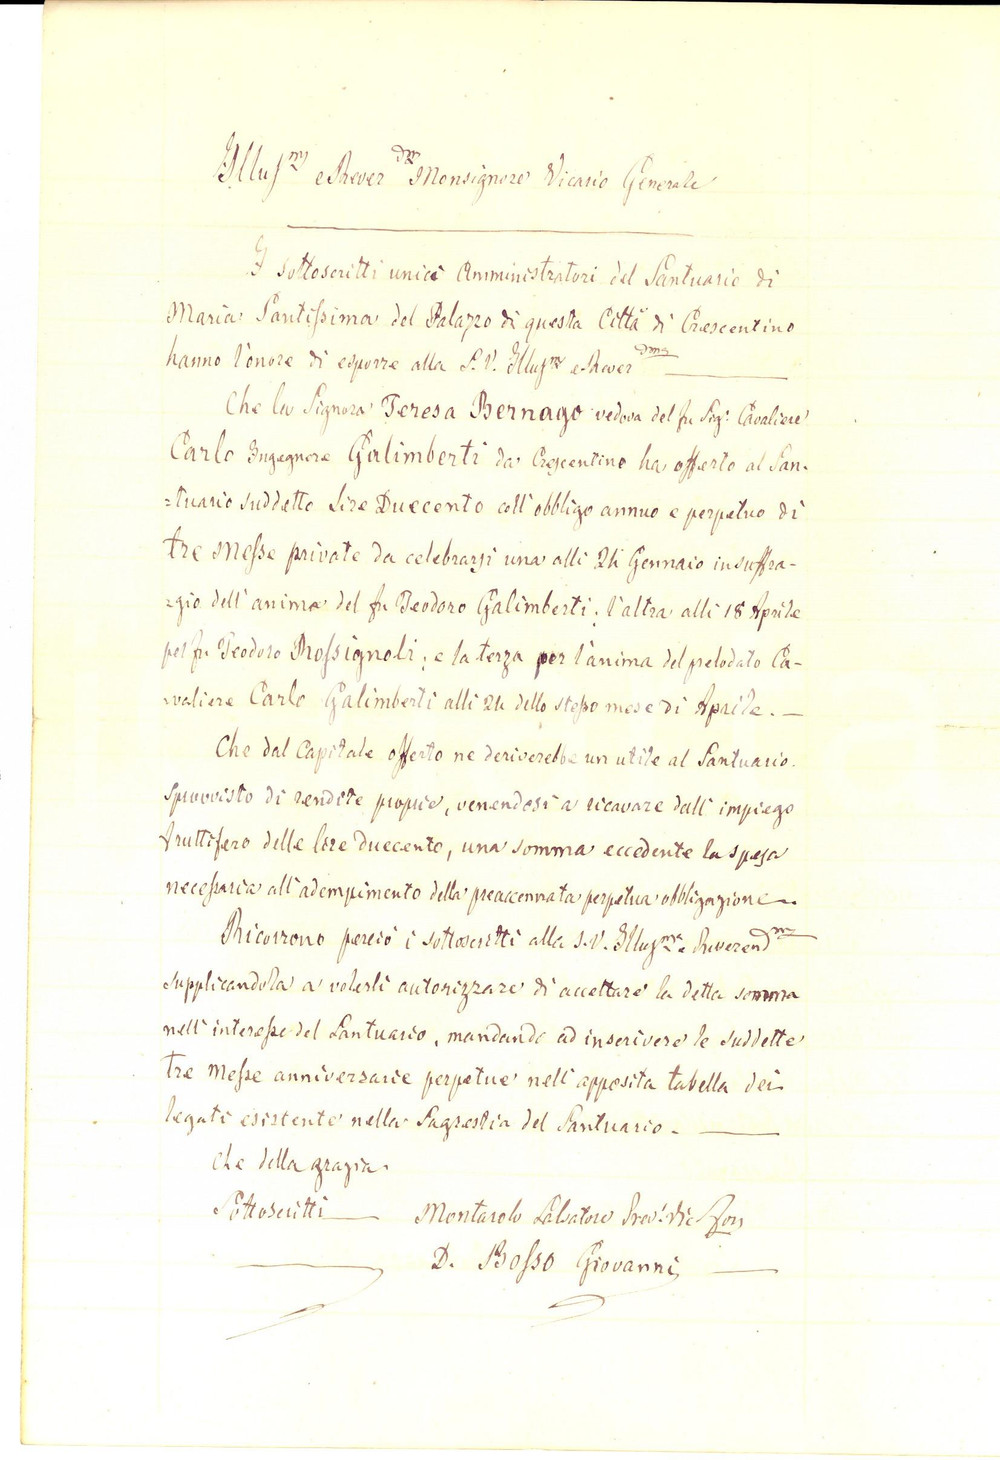 Illus.mo e Rever.dmo Monsignore Vicario Generale
I sottoscritti unici Amministratori del Santuario di
Maria Santissima del Palazzo di questa Città di Crescentino
hanno l'onore di esporre alla S. V. Illus.ma e Rever.dma
Che la Signora Teresa Bernago vedova del fu Sig.r Cavaliere
Carlo Ingegnere Galimberti da Crescentino ha offerto al San-
=tuario suddetto lire Duecento coll'obbligo annuo e perpetuo di
tre Messe private da celebrarsi una alli 24 Gennaio in suffra-
=gio dell'anima del fu Teodoro Galimberti; l'altra alli 18 Aprile
pel fu Teodoro Rossignoli; e la terza per l'anima del prelodato Ca-
=valiere Carlo Galimberti alli 24 dello stesso mese di Aprile. —
Che dal Capitale offerto ne deriverebbe un utile al Santuario
sprovvisto di rendite proprie, venendosi a ricavare dall'impiego
fruttifero delle lire duecento, una somma eccedente la spesa
necessaria all'adempimento della preaccennata perpetua obbligazione.
Ricorrono perciò i sottoscritti alla S. V. Illus.ma e Reverend.ma
supplicandola a volerli autorizzare di accettare la detta somma
nell'interesse del Santuario, mandando ad inscrivere le suddette
tre Messe anniversarie perpetue nell'apposita tabella dei
legati esistente nella Sagrestia del Santuario. —
Che della grazia.
Sottoscritti Montarolo Salvatore Prev.o Vic. For.
D. Bosso Giovanni